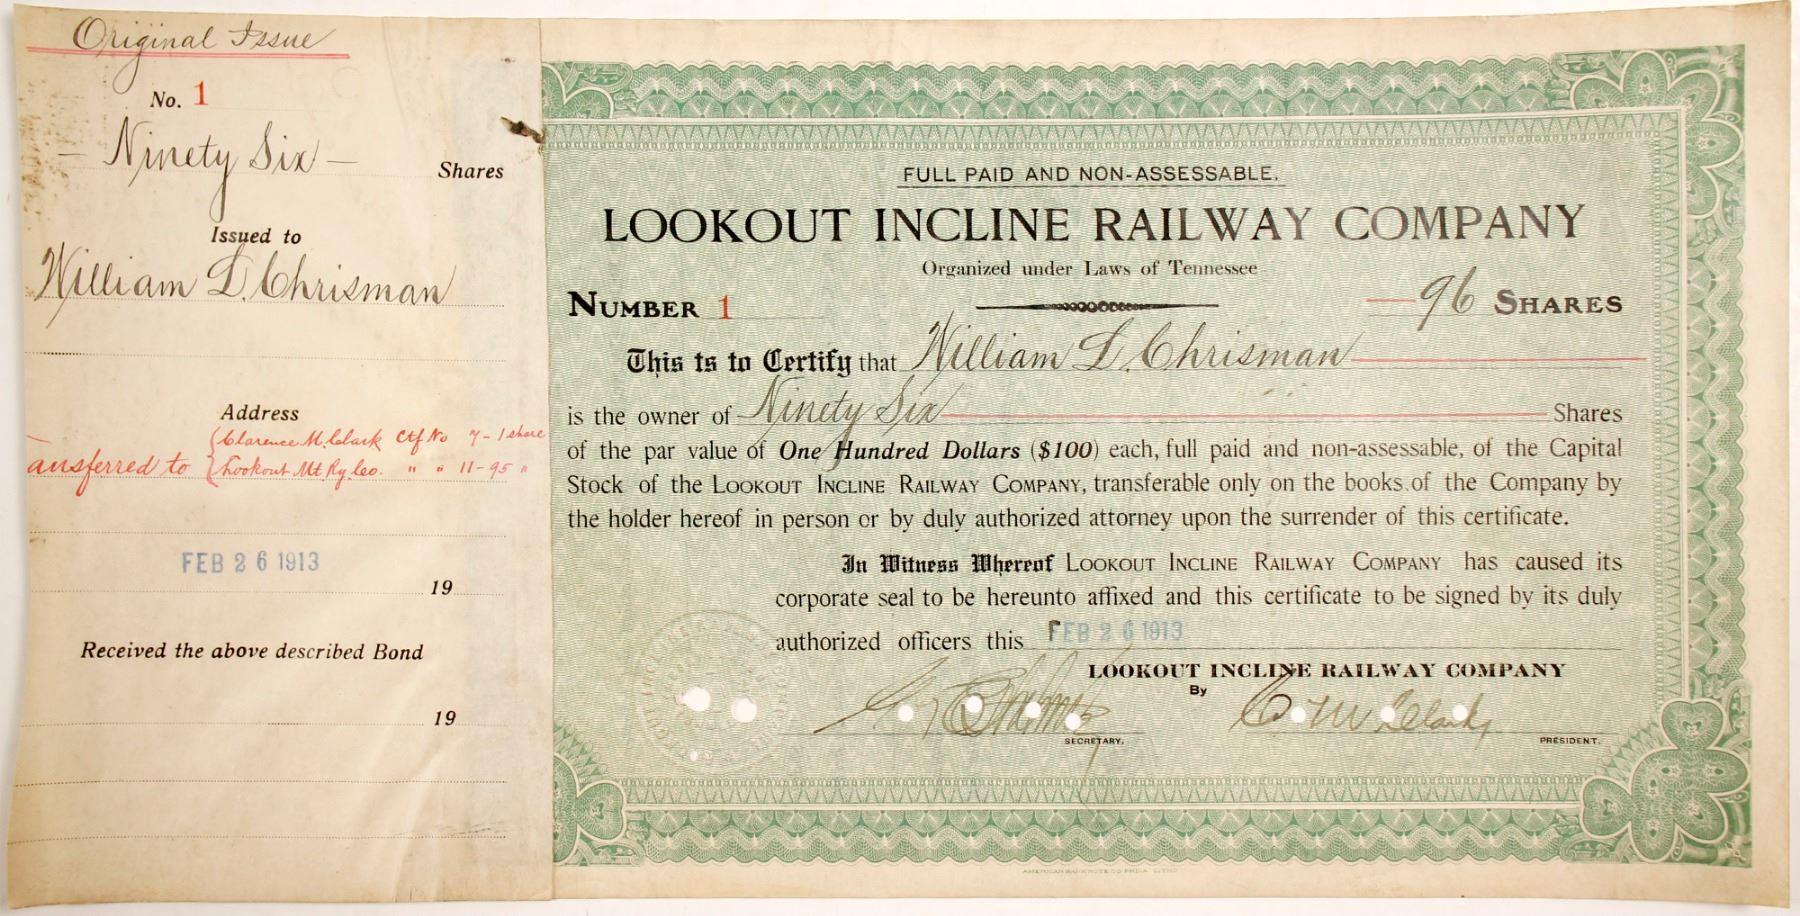 Original Issue
No. 1
— Ninety Six —
Shares
Issued to
William L. Chrisman
Address
ansferred to { Clarence M. Clark Ctf No 7 - 1 share
Lookout Mt Ry. Co. " " 11 - 95 "
FEB 26 1913
19
Received the above described Bond
19
FULL PAID AND NON-ASSESSABLE.
LOOKOUT INCLINE RAILWAY COMPANY
Organized under Laws of Tennessee
NUMBER 1
— 96 SHARES
This is to Certify that William L. Chrisman
is the owner of Ninety Six Shares
of the par value of One Hundred Dollars ($100) each, full paid and non-assessable, of the Capital
Stock of the LOOKOUT INCLINE RAILWAY COMPANY, transferable only on the books of the Company by
the holder hereof in person or by duly authorized attorney upon the surrender of this certificate.
In Witness Whereof LOOKOUT INCLINE RAILWAY COMPANY has caused its
corporate seal to be hereunto affixed and this certificate to be signed by its duly
authorized officers this FEB 26 1913
LOOKOUT INCLINE RAILWAY COMPANY
By
C. M. Clark
SECRETARY.
PRESIDENT.
AMERICAN BANK NOTE CO PHILA LITHO